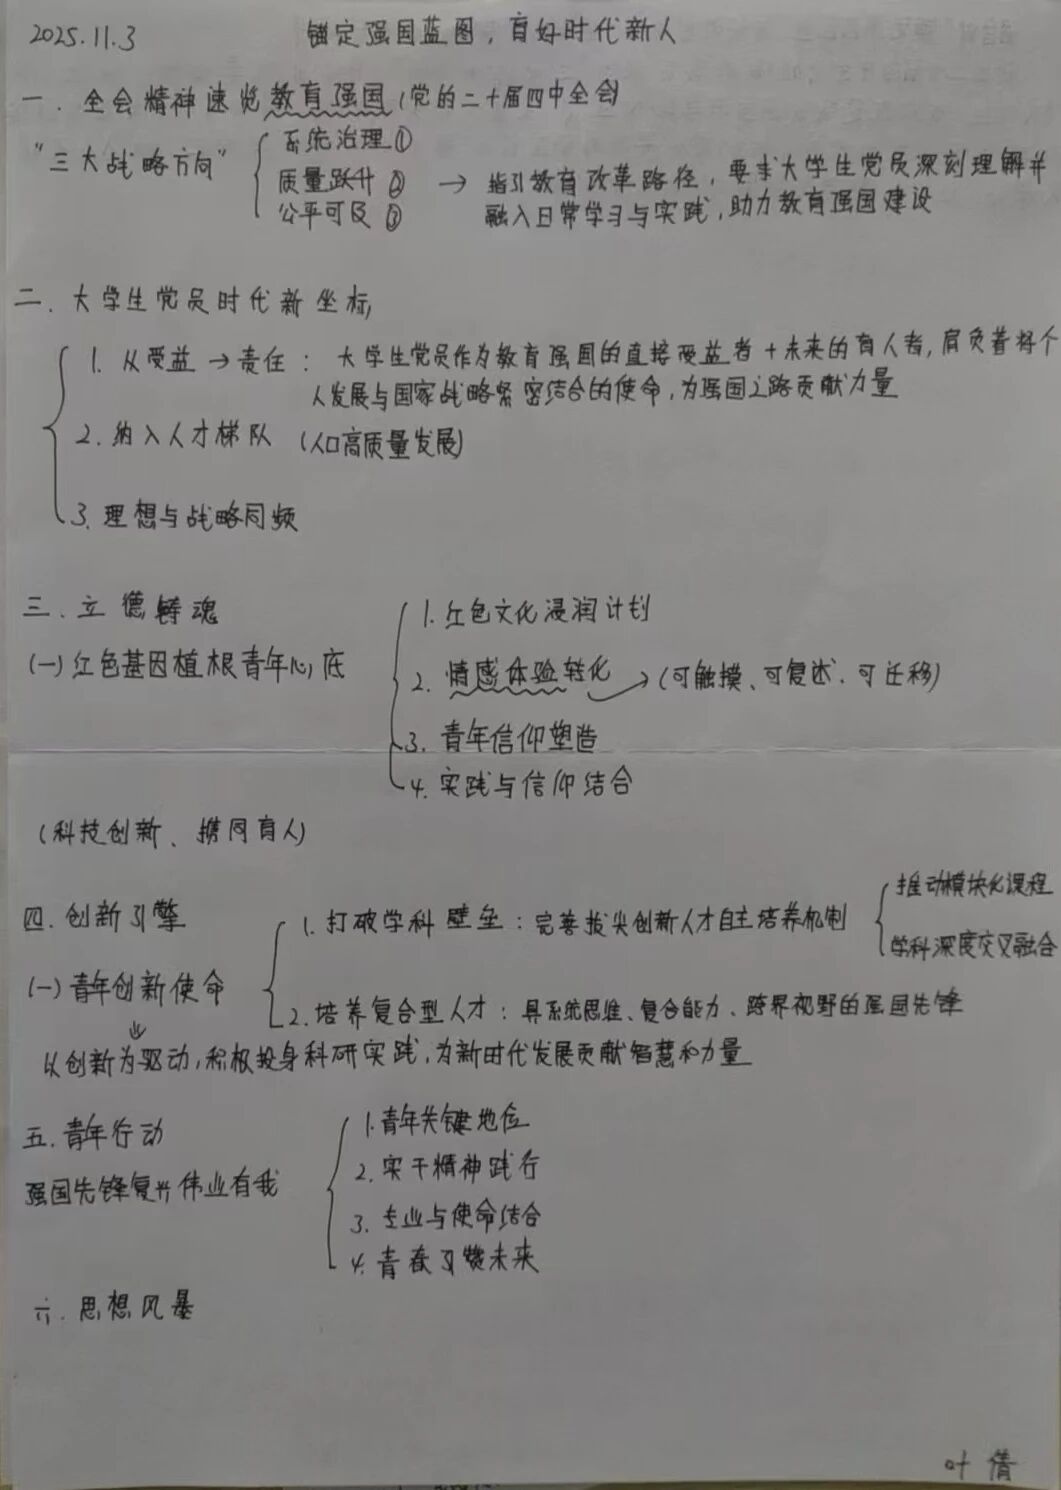 2025.11.3
锚定强国蓝图，育好时代新人
一．全会精神速览教育强国（党的二十届四中全会）
"三大战略方向"
系统治理①
质量跃升②
公平可及③
→ 指引教育改革路径，要求大学生党员深刻理解并
融入日常学习与实践，助力教育强国建设
二．大学生党员时代新坐标
1. 从受益→责任：大学生党员作为教育强国的直接受益者+未来的育人者，肩负着将个
人发展与国家战略紧密结合的使命，为强国之路贡献力量
2. 纳入人才梯队（人口高质量发展）
3. 理想与战略同频
三．立德铸魂
(一)红色基因植根青年心底
1. 红色文化浸润计划
2. 情感体验转化→（可触摸、可复述、可迁移）
3. 青年信仰塑造
4. 实践与信仰结合
（科技创新、携同育人）
四．创新引擎
(一)青年创新使命
1. 打破学科壁垒：完善拔尖创新人才自主培养机制
推动模块化课程
学科深度交叉融合
2. 培养复合型人才：具系统思维、复合能力、跨界视野的强国先锋
↓
以创新为驱动，积极投身科研实践，为新时代发展贡献智慧和力量
五．青年行动
强国先锋复兴伟业有我
1. 青年关键地位
2. 实干精神践行
3. 专业与使命结合
4. 青春引燃未来
六．思想风暴
叶倩